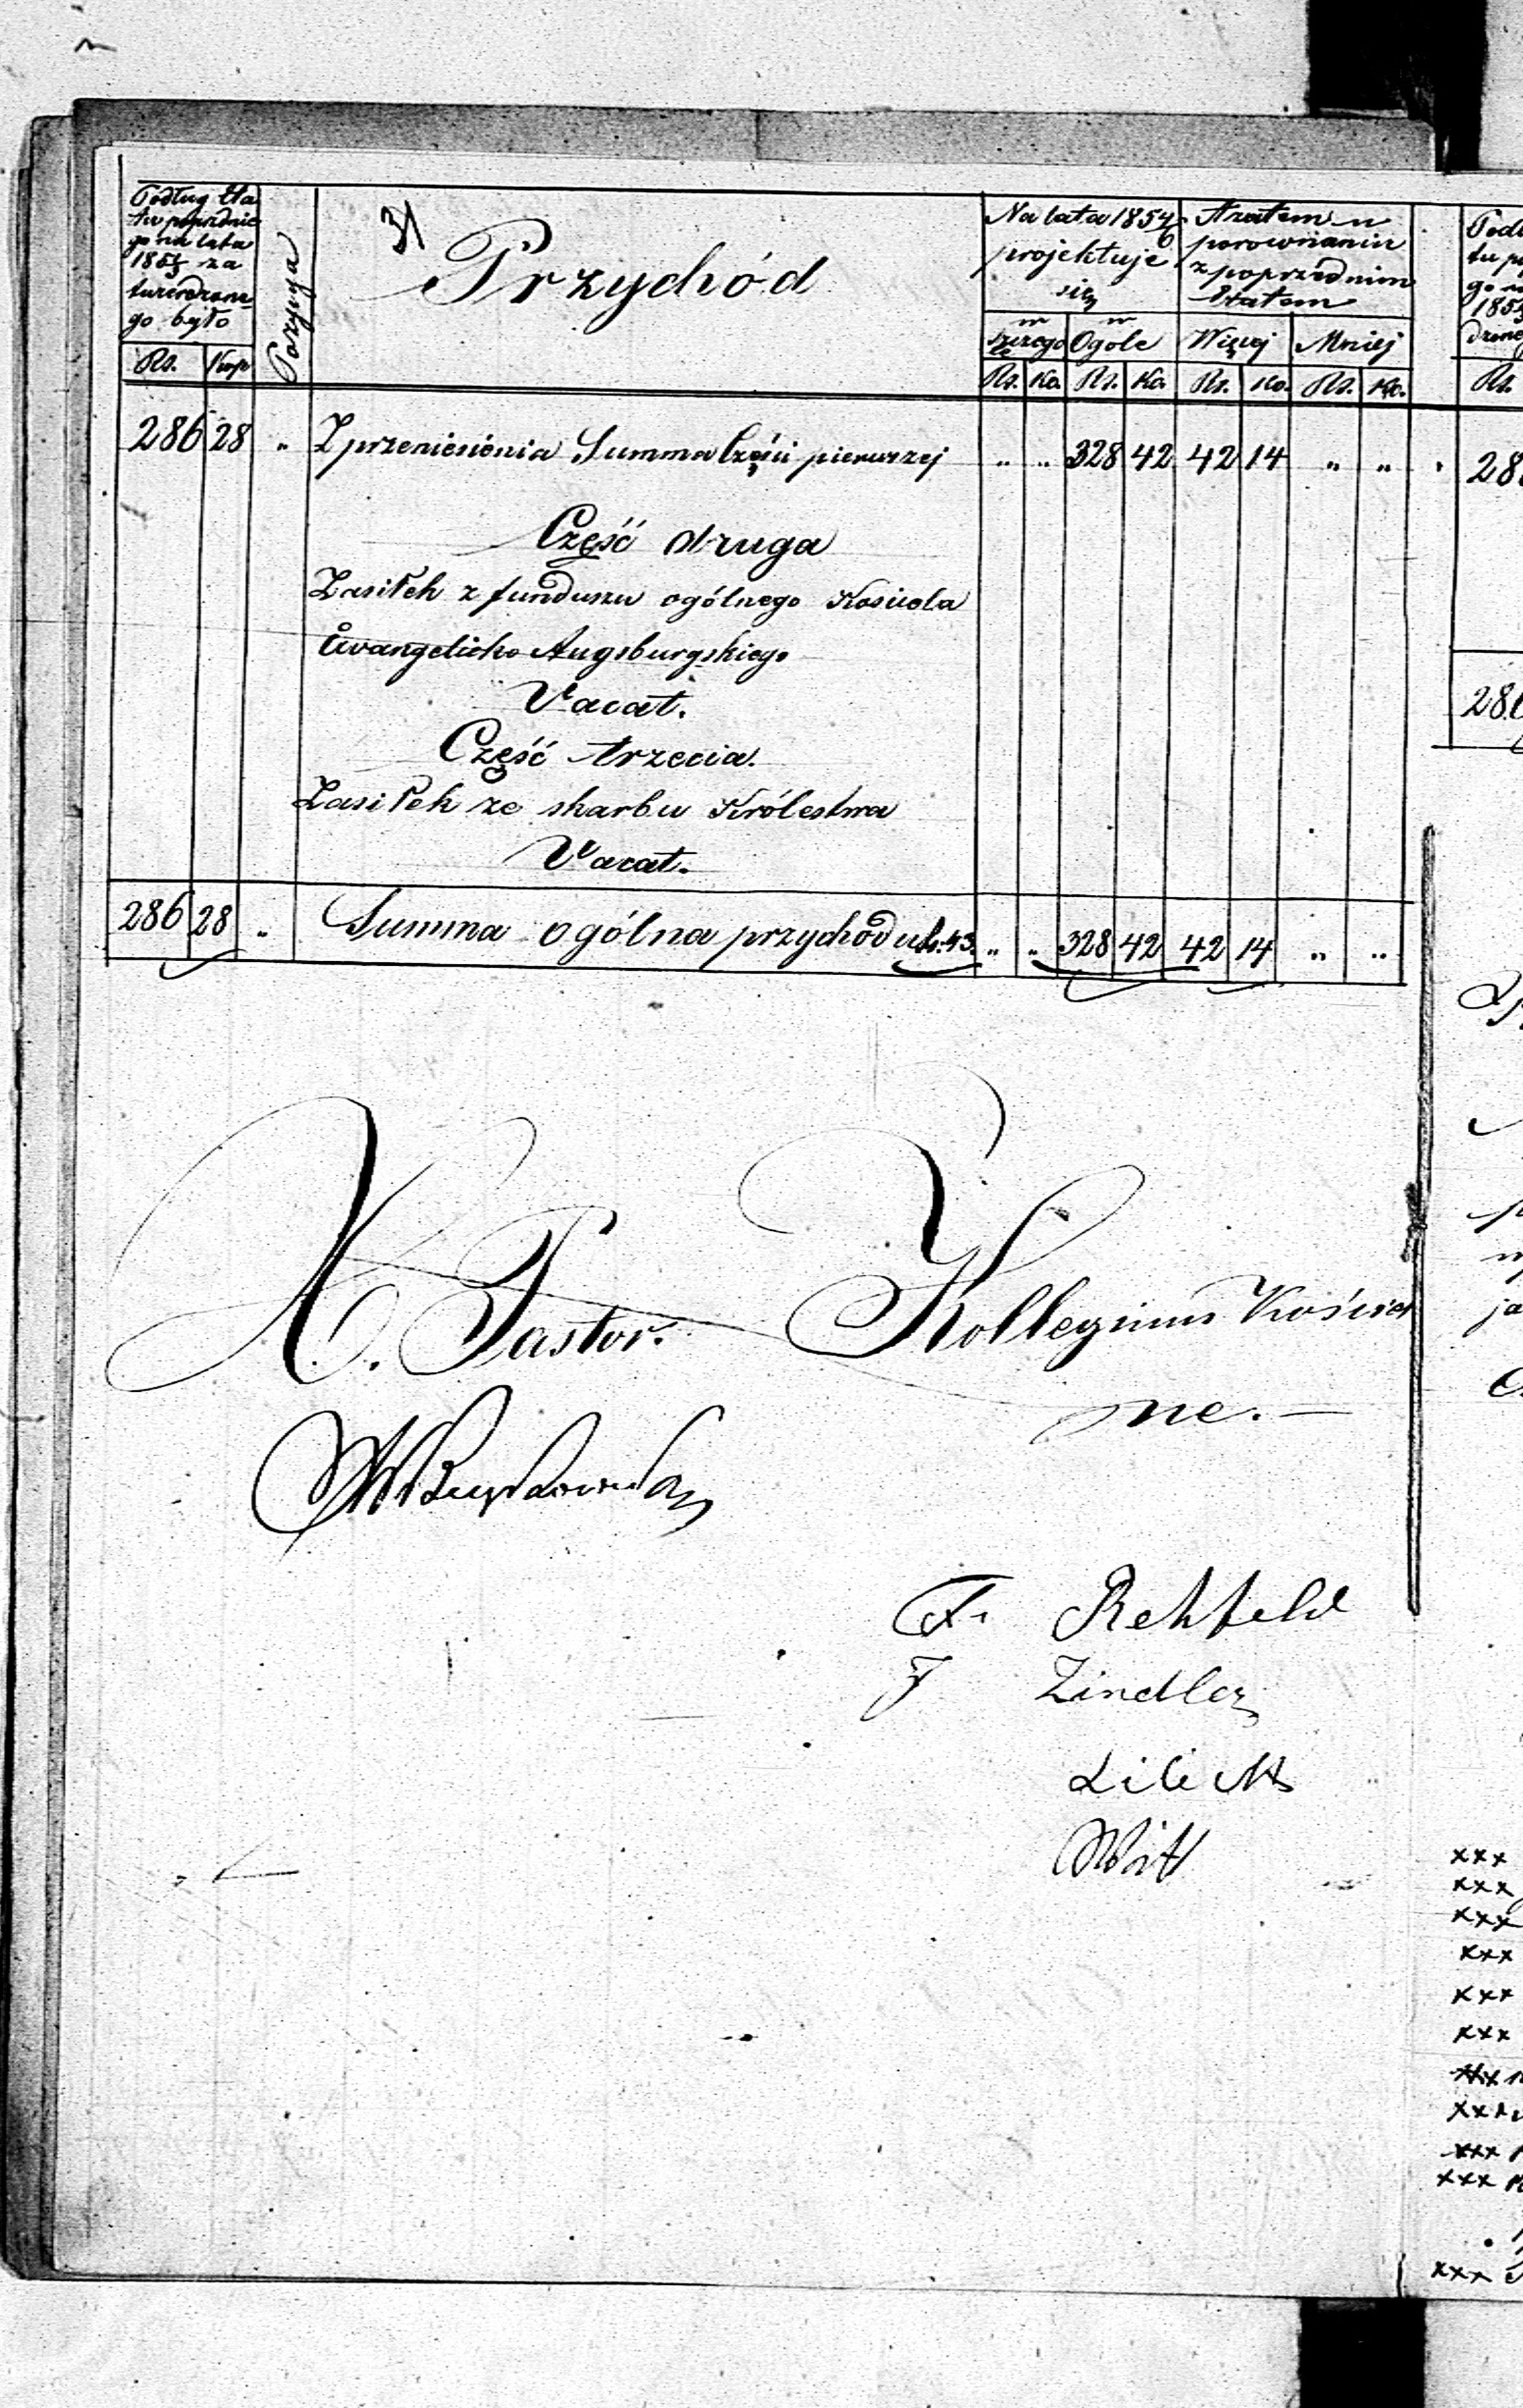 Podług Eta
tu poprzednie
go na lata
185 za
twierdzone
go było
Rs. Kop
Pozycya
31
Przychód
Na lata 1854/6
projektuje
się
w szczegó
le
w
Ogole
Rs. Ko. Rs. Ko.
A zatem w
porownaniu
z poprzednim
Etatem
Więcej Mniej
Rs. Ko. Rs. Ko.
286 28 " Z przeniesienia Summa Części pierwszej " " 328 42 42 14 " "
Część druga
Zasiłek z funduszu ogólnego Kosciola
Ewangelicko Augsburgskiego
Vacat.
Część trzecia.
Zasiłek ze skarbu Królestwa
Vacat.
286 28 " Summa ogólna przychodu " " 328 42 42 14 " "
X. Pastor.
Kollegium Kościel
ne.—
F. Rehfeld
J Zindler
Witt
Podł
tu po
go n
185
Rs.
28
xxx
xxx
xxx
xxx
xxx
xxx
xxx
xxx
xxx